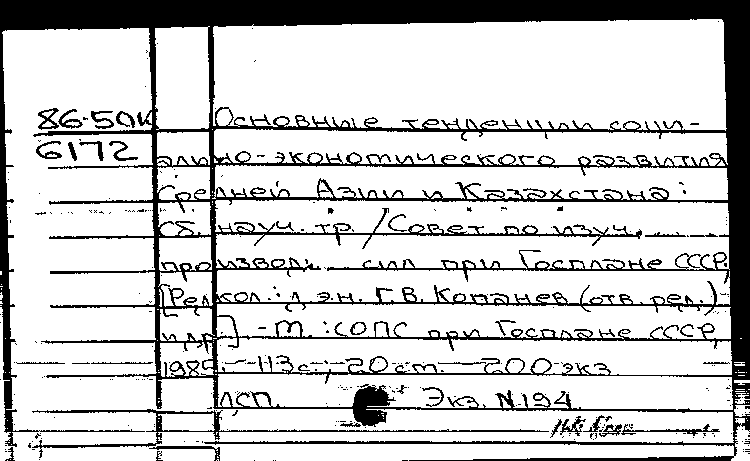 86-50К
6172
Основные тенденции соци-
ально-экономического развития
Средней Азии и Казахстана:
Сб. науч. тр. / Совет по изуч.
производ. сил при Госплане СССР;
[Редкол.: д.э.н. Г.В. Копанев (отв. ред.)
и др.] - М.: СОПС при Госплане СССР,
1985. - 113 с.; 20 см. - 200 экз.
ДСП. Экз. N 194